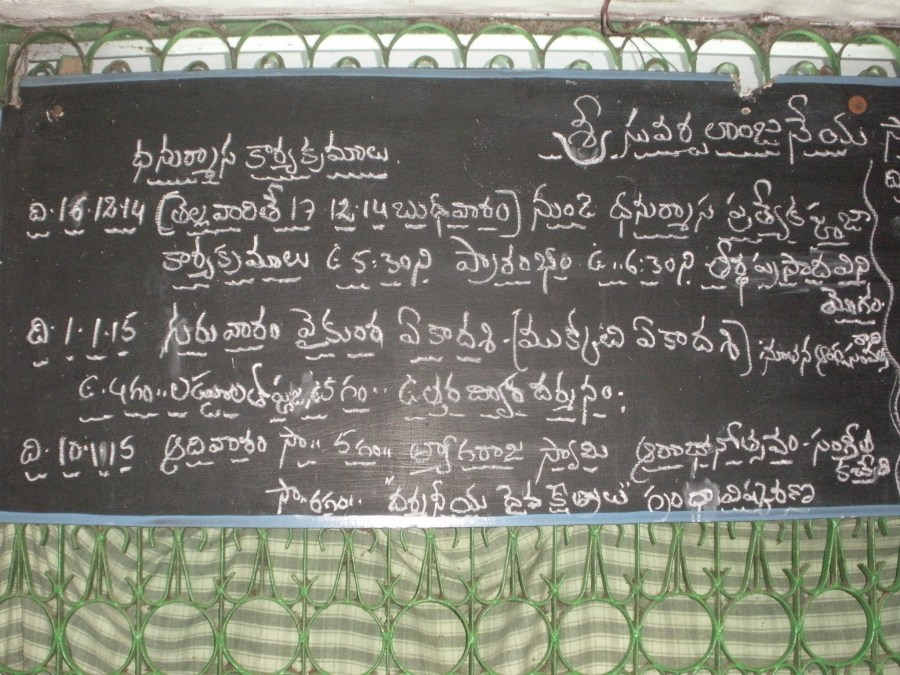 శ్రీ సువర్చలాంజనేయ స్వా
ధనుర్మాస కార్యక్రమాలు.
ది. 16.12.14 (తెల్లవారితే 17 12.14 బుధవారం) నుండి ధనుర్మాస ప్రత్యేక పూజా
కార్యక్రమాలు ఉ 5:30ని ప్రారంభం ఉ..6:30ని తీర్థప్రసాదవిని
యోగం
ది. 1.1.15 గురువారం వైకుంఠ ఏకాదశి (ముక్కోటి ఏకాదశి)
ఉ.4గం..లకు గం.. ఉత్తర ద్వార దర్శనం.
ది. 10.1.15 ఆదివారం సా.. 5గం.. త్యాగరాజ స్వామి ఆరాధనోత్సవం-సంగీత
కచ్చేరి
సా గం.. "దర్శనీయ దైవ క్షేత్రాలు" గ్రంధావిష్కరణ